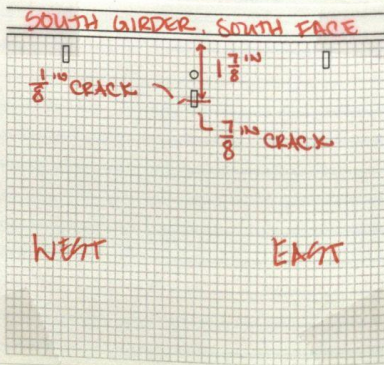 SOUTH GIRDER, SOUTH FACE
1 7/8 IN
1/8 IN CRACK
7/8 IN CRACK
WEST
EAST